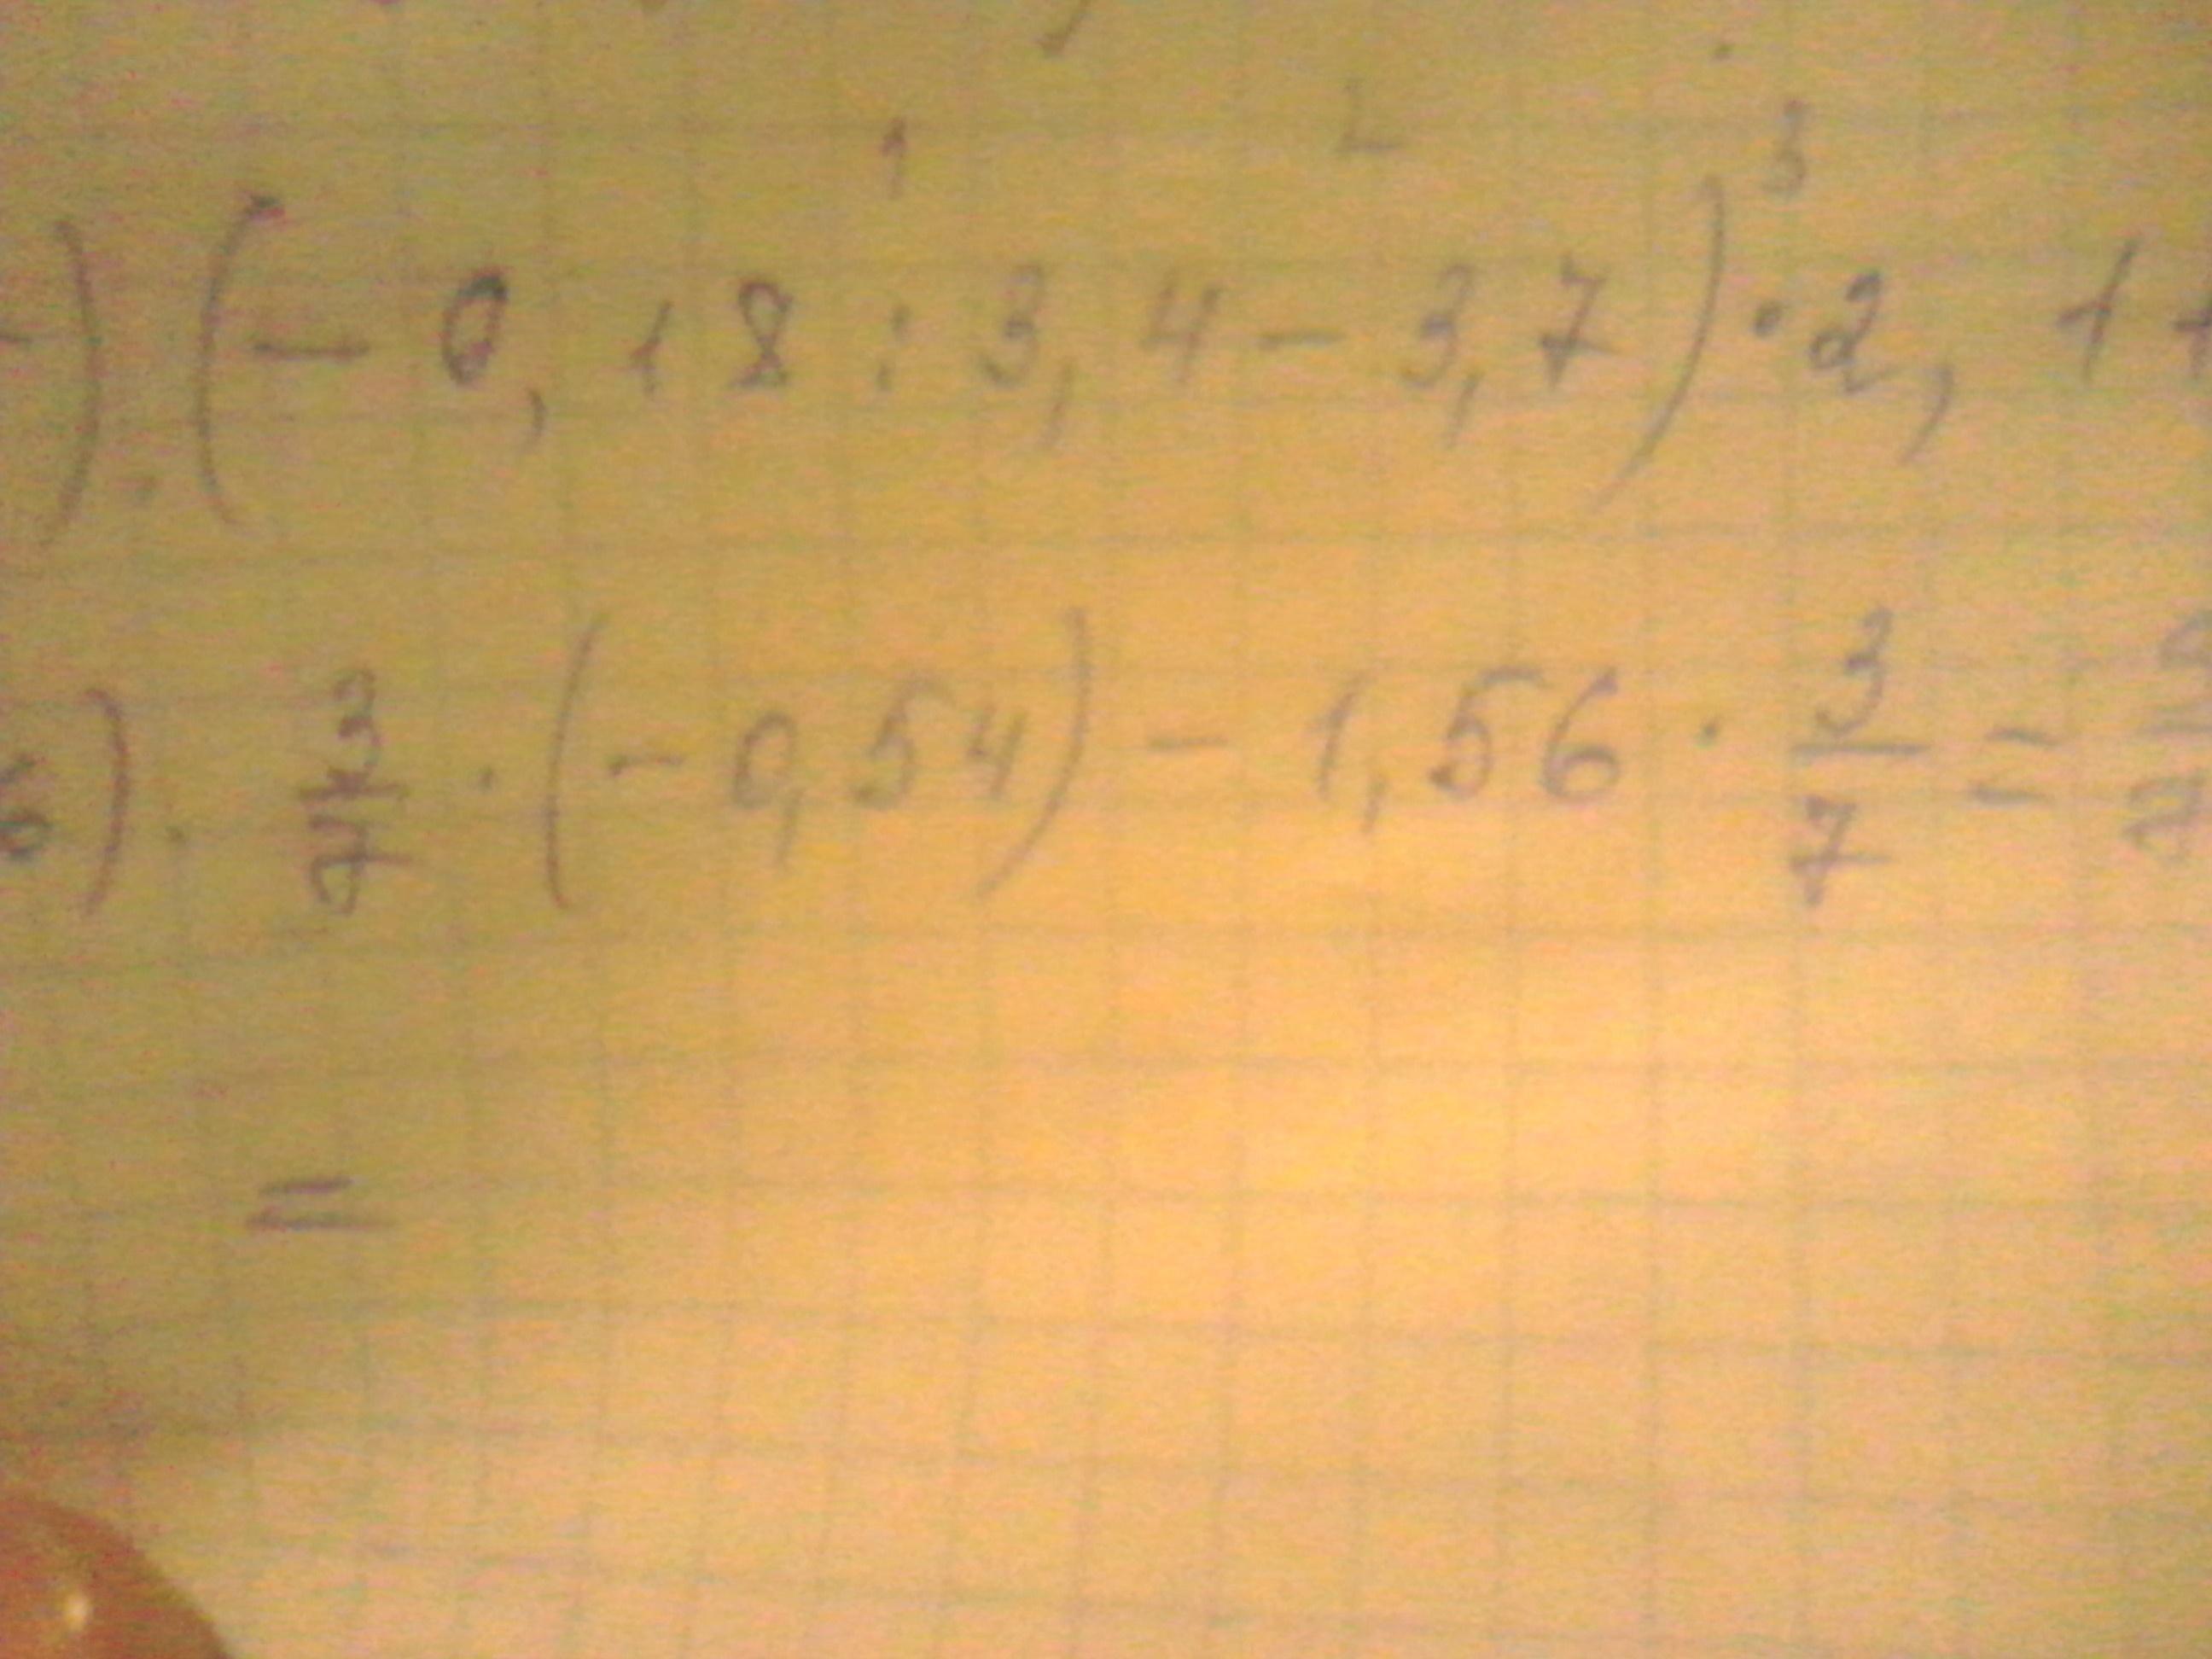 1 2 3
) (- 0,18 : 3,4 - 3,7) · 2,1+
б). 3/7 · (- 0,54) - 1,56 · 3/7 =
=